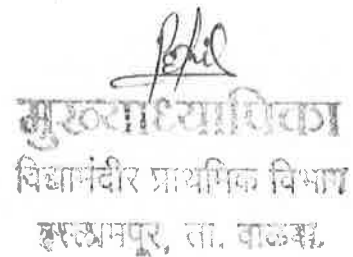 मुख्याध्यापिका
विद्यामंदीर प्राथमिक विभाग
इस्लामपूर, ता. वाळवा.